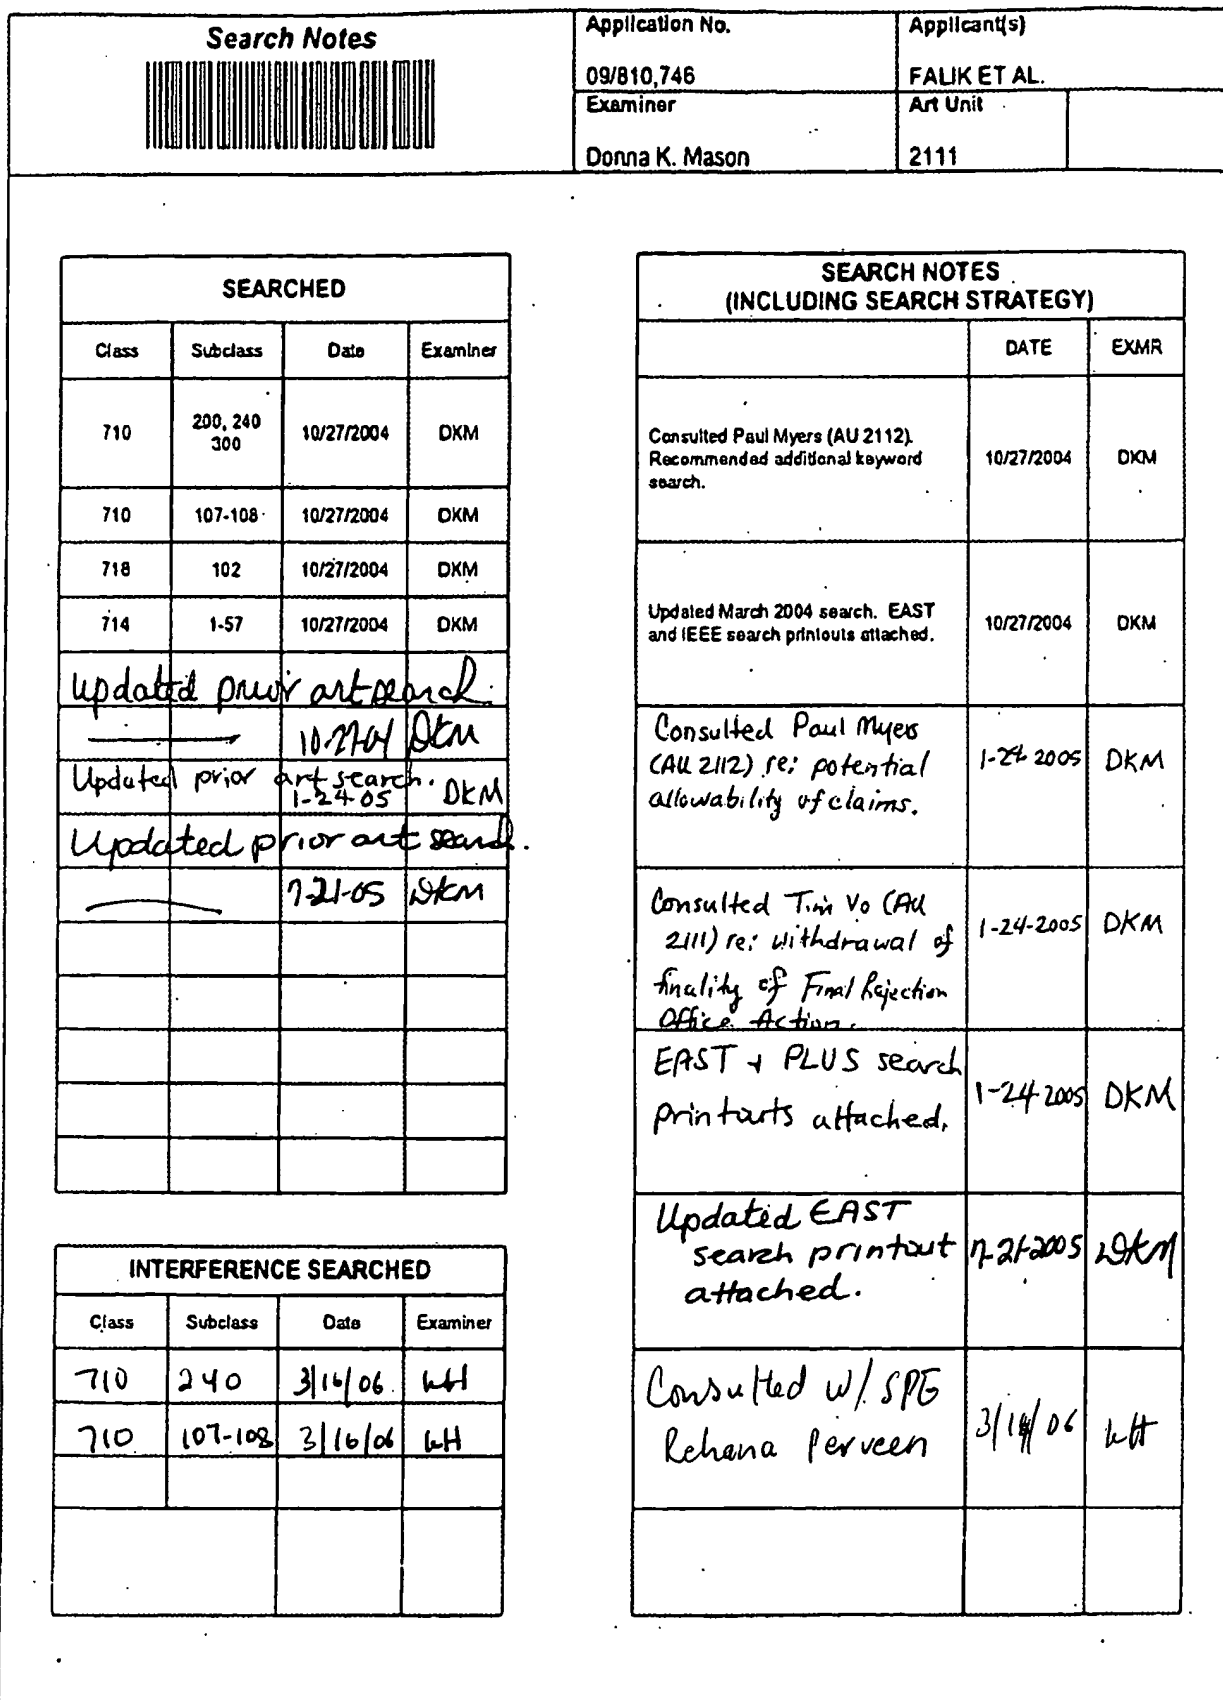 Search Notes
Application No.
09/810,746
Applicant(s)
FALIK ET AL.
Examiner
Donna K. Mason
Art Unit
2111
SEARCHED
Class Subclass Date Examiner
710 200, 240 300 10/27/2004 DKM
710 107-108 10/27/2004 DKM
718 102 10/27/2004 DKM
714 1-57 10/27/2004 DKM
Updated prior art search.
10-27-04 DKM
Updated prior art search.
1-24-05 DKM
Updated prior art search.
7-21-05 DKM
INTERFERENCE SEARCHED
Class Subclass Date Examiner
710 240 3/16/06
710 107-108 3/16/06
SEARCH NOTES
(INCLUDING SEARCH STRATEGY)
DATE EXMR
Consulted Paul Myers (AU 2112).
Recommended additional keyword 10/27/2004 DKM
search.
Updated March 2004 search. EAST
and IEEE search printouts attached. 10/27/2004 DKM
Consulted Paul Myers
(AU 2112) re: potential 1-24-2005 DKM
allowability of claims.
Consulted Tim Vo (AU
2111) re: withdrawal of 1-24-2005 DKM
finality of Final Rejection
Office Action.
EAST + PLUS search
printouts attached. 1-24-2005 DKM
Updated EAST
search printout 7-21-2005 DKM
attached.
Consulted w/ SPE
Rehana Perveen